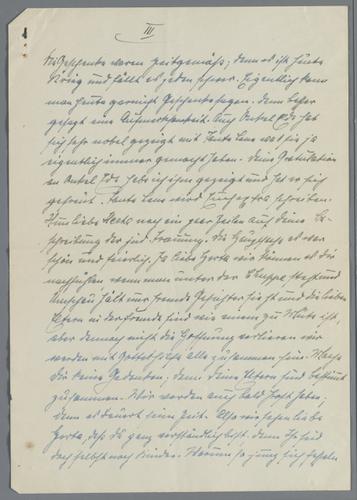 III
Geschenke waren zeitgemäss, denn es ist heute
Krieg und fällt es jeden schwer. Eigentlich kann
man heute garnicht Geschenke sagen, denn besser
gesagt eine Aufmerksamkeit. Auch Onkel hat
sich sehr nobel gezeigt mit Tante Lene was sie ja
eigentlich immer gemacht haben. Deine Gratulation
an Onkel habe ich ihm gezeigt und hat er sich
gefreut. Tante Lene wird Euch extra schreiben.
Nun liebe Herta noch ein paar Zeilen auf deine Be-
schreibung der jüd. Trauung. Die es war
schön und feierlich. Ja liebe Herta wir können es dir
nachfühlen wenn man unter der Chuppe steht und
Umschau hält nur fremde Gesichter sieht und die lieben
Eltern in der Fremde sind wie einem zu Mute ist,
aber dennoch nicht die Hoffnung verlieren wir
werden mit Gottes Hilfe alle zusammen sein. Mach
dir keine Gedanken, denn deine Eltern sind bestimmt
zusammen. Wir werden auch bald Post haben,
denn es dauert seine Zeit. Also wir sehen liebe
Herta, dass du ganz verständlich bist, denn Ihr seid
doch selbst noch Kinder. Warum so jung sich